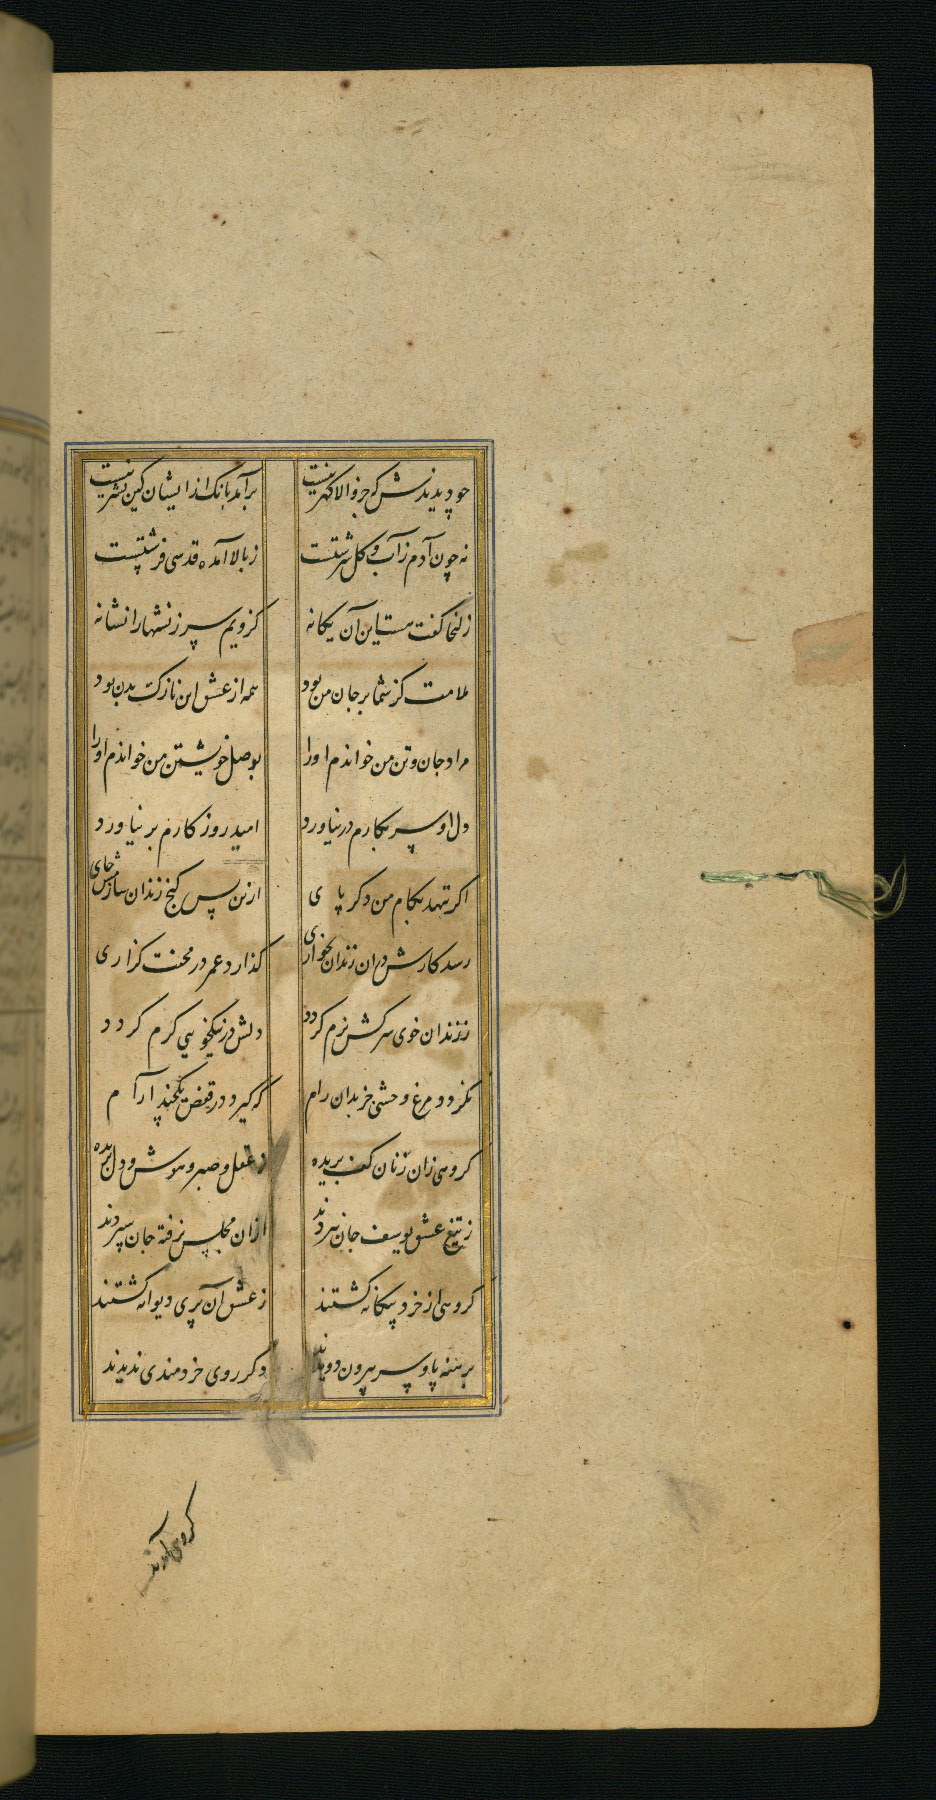 چو دیدندش که جز والا گهر نیست برآمد بانگ از ایشان کین بشر نیست
نه چون آدم ز آب و گل سرشتست ز بالا آمده قدسی فرشتست
زلیخا گفت هست این آن یگانه کزویم سرزنشها را نشانه
ملامت کز شما بر جان من بود همه از عشق این نازک بدن بود
مراد جان و تن من خواندم او را بوصل خویشتن من خواندم او را
دل او سر بکارم در نیاورد امید روزگارم بر نیاورد
اگر ننهد بکام من دگر پای ازین پس کنج زندان سازمش جای
رسد کارش در ان زندان بخواری گذارد عمر در محنت گزاری
ز زندان خوی سرکش نرم گردد دلش در نیکخویی گرم گردد
نگردد مرغ وحشی جز بدان رام که گیرد در قفص یکچند آرام
گروهی زان زنان کف بریده ز عقل و صبر و هوش و دل بریده
ز تیغ عشق یوسف جان نبردند ازان مجلس نرفته جان سپردند
گروهی از خرد بیگانه گشتند ز عشق آن پری دیوانه گشتند
برهنه پا و سر بیرون دویدند دگر روی خردمندی ندیدند
گروهی آمدند